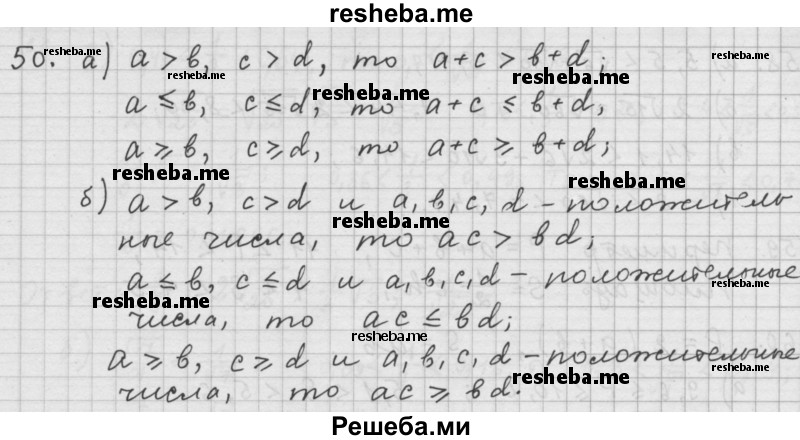 resheba.me
50. а) a > b, c > d, то a+c > b+d;
a ≤ b, c ≤ d, то a+c ≤ b+d,
a ⩾ b, c ⩾ d, то a+c ⩾ b+d;
б) a > b, c > d и a, b, c, d – положитель
ные числа, то ac > bd;
a ≤ b, c ≤ d и a, b, c, d – положительные
числа, то ac ≤ bd;
a ⩾ b, c ⩾ d и a, b, c, d – положительные
числа, то ac ⩾ bd.
resheba.me
resheba.me
resheba.me
resheba.me
resheba.me
resheba.me
resheba.me
resheba.me
resheba.me
resheba.me
resheba.me
resheba.me
Решеба.ми